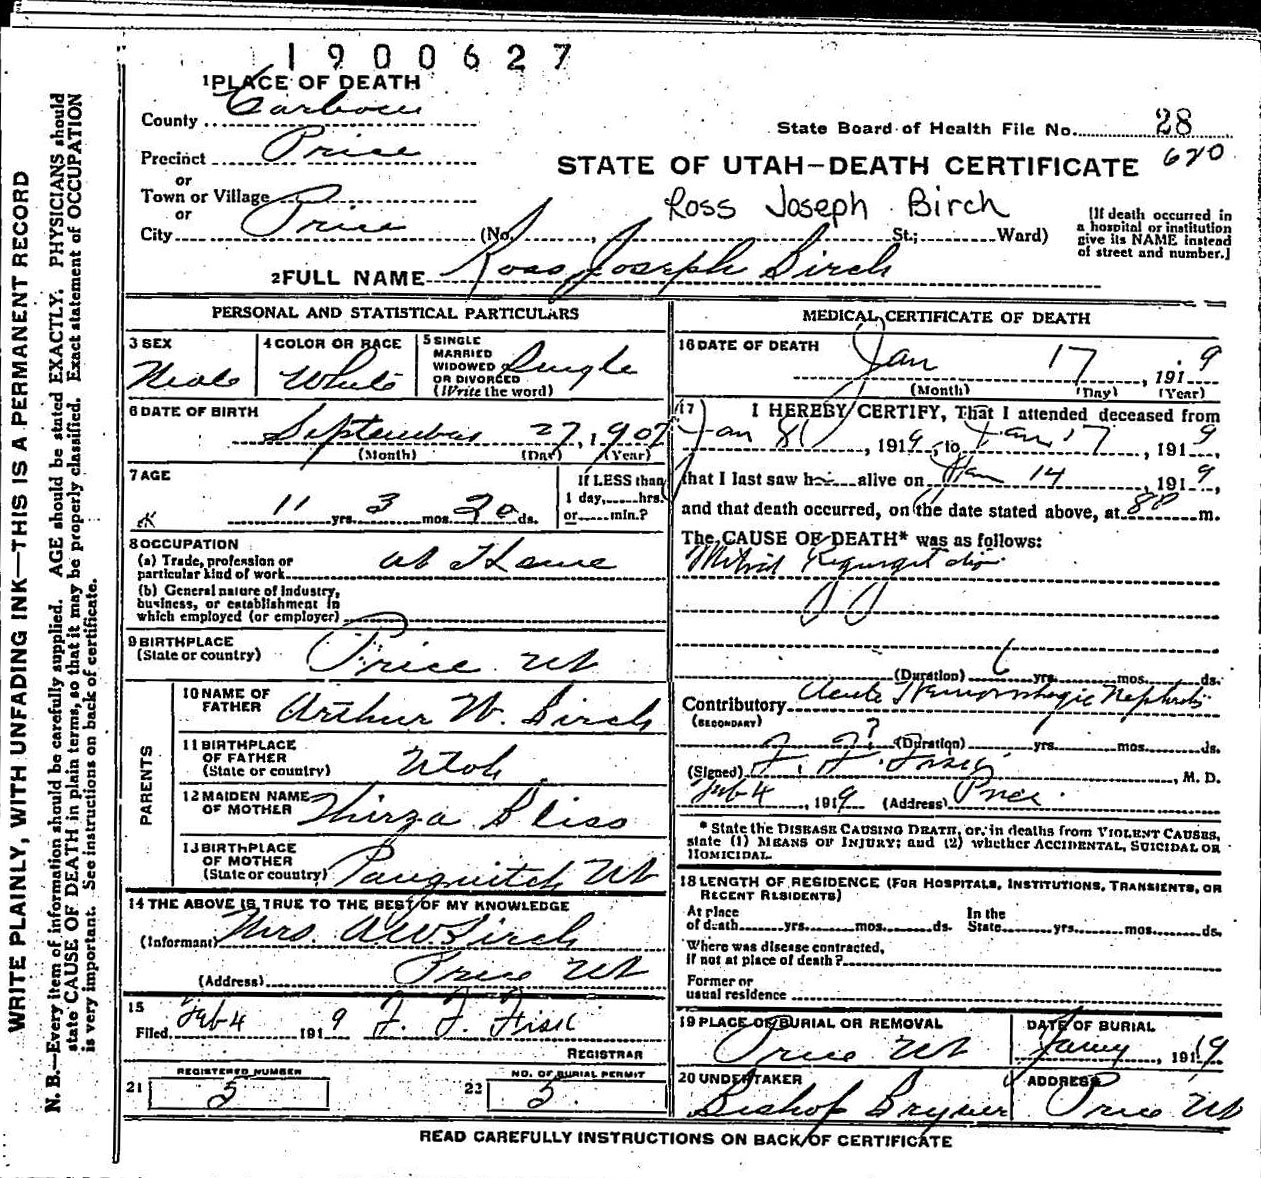 1900627
1 PLACE OF DEATH
County Carbon
State Board of Health File No. 28
620
Precinct Price
STATE OF UTAH—DEATH CERTIFICATE
or
Town or Village
Ross Joseph Birch
or
City Price (No. , St.; Ward)
[If death occurred in
a hospital or institution
give its NAME instead
of street and number.]
2 FULL NAME Ross Joseph Birch
PERSONAL AND STATISTICAL PARTICULARS
3 SEX
Male
4 COLOR OR RACE
White
5 SINGLE
MARRIED
WIDOWED
OR DIVORCED
(Write the word)
Single
6 DATE OF BIRTH
September 27, 1907
(Month) (Day) (Year)
7 AGE
11 yrs. 3 mos. 20 ds.
If LESS than
1 day, hrs.
or min.?
8 OCCUPATION
(a) Trade, profession or
particular kind of work at Home
(b) General nature of industry,
business, or establishment in
which employed (or employer)
9 BIRTHPLACE
(State or country) Price Ut
PARENTS
10 NAME OF
FATHER Arthur W. Birch
11 BIRTHPLACE
OF FATHER
(State or country) Utah
12 MAIDEN NAME
OF MOTHER Thirza Bliss
13 BIRTHPLACE
OF MOTHER
(State or country) Panguitch Ut
14 THE ABOVE IS TRUE TO THE BEST OF MY KNOWLEDGE
(Informant) Mrs. A W Birch
(Address) Price Ut
15
Filed Feb 4 1919 F. F. Fisk
REGISTRAR
21 REGISTERED NUMBER
5
22 NO. OF BURIAL PERMIT
5.
MEDICAL CERTIFICATE OF DEATH
16 DATE OF DEATH
Jan 17, 1919
(Month) (Day) (Year)
17 I HEREBY CERTIFY, That I attended deceased from
Jan 8, 1919, to Jan 17, 1919,
that I last saw h alive on Jan 14, 1919,
and that death occurred, on the date stated above, at 8 P m.
The CAUSE OF DEATH* was as follows:
Mitral Regurgitation
(Duration) 6 yrs. mos. ds.
Contributory Acute Hemorrhagic Nephritis
(SECONDARY)
? (Duration) yrs. mos. ds.
(Signed) F. F. Fisk, M. D.
Feb 4, 1919 (Address) Price
* State the DISEASE CAUSING DEATH, or, in deaths from VIOLENT CAUSES,
state (1) MEANS OF INJURY; and (2) whether ACCIDENTAL, SUICIDAL OR
HOMICIDAL.
18 LENGTH OF RESIDENCE (FOR HOSPITALS, INSTITUTIONS, TRANSIENTS, OR
RECENT RESIDENTS)
At place
of death yrs. mos. ds.
In the
State yrs. mos. ds.
Where was disease contracted,
if not at place of death?
Former or
usual residence
19 PLACE OF BURIAL OR REMOVAL
Price Ut
DATE OF BURIAL
, 1919
20 UNDERTAKER
Bishop Bryner
ADDRESS
Price Ut
READ CAREFULLY INSTRUCTIONS ON BACK OF CERTIFICATE
WRITE PLAINLY, WITH UNFADING INK—THIS IS A PERMANENT RECORD
N. B.—Every item of information should be carefully supplied. AGE should be stated EXACTLY. PHYSICIANS should
state CAUSE OF DEATH in plain terms, so that it may be properly classified. Exact statement of OCCUPATION
is very important. See instructions on back of certificate.